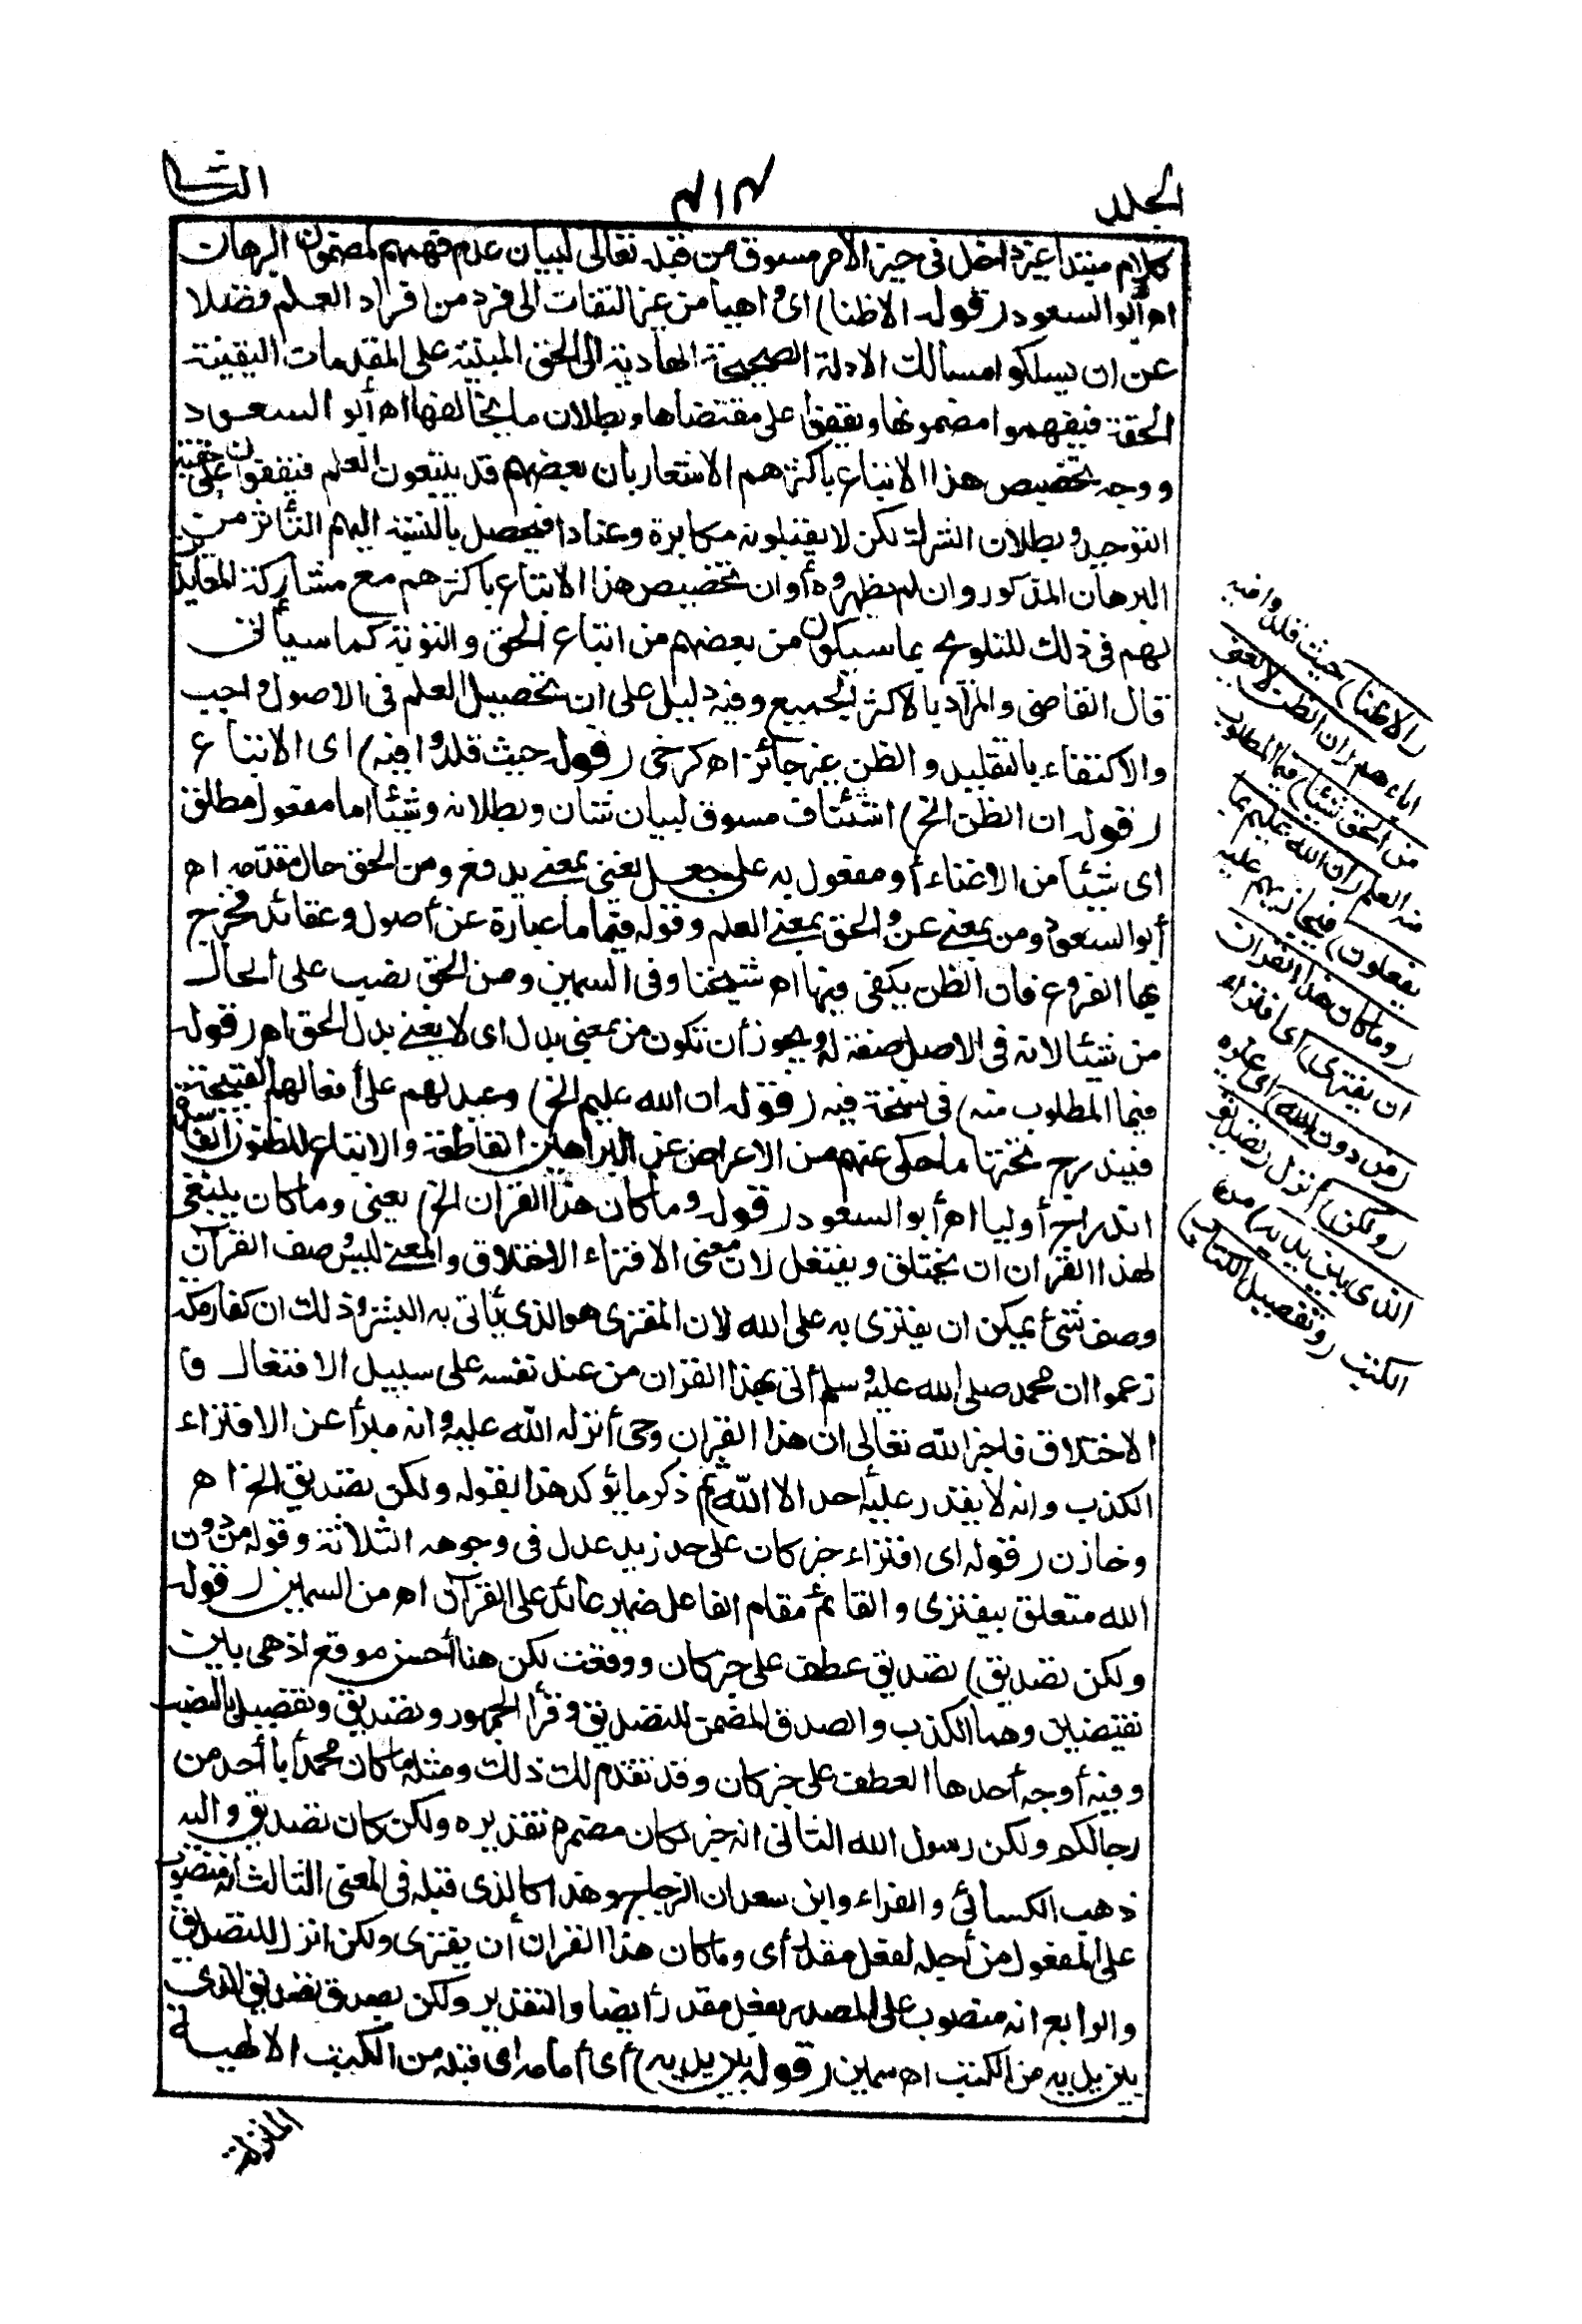 الجلد
٤١٤
الثا
كلام مبتدأ غير داخل في حيز الأمر مسوق من قبله تعالى لبيان عدم فهمهم لمضمون البرهان
اه أبو السعود (قوله الا ظنا) أي واهيا من غير التفات الى فرد من أفراد العلم فضلا
عن ان يسلكوا مسالك الادلة الصحيحة الهادية الى الحق المبنية على المقدمات اليقينية
الحقة فيفهموا مضمونها ويقفوا على مقتضاها وبطلان ما يخالفها اه أبو السعود
ووجه تخصيص هذا الاتباع باكثرهم الاشعار بان بعضهم قد يتبعون العلم فيقفون على حقية
التوحيد وبطلان الشرك لكن لا يقبلونه مكابرة وعنادا فيحصل بالنسبة اليهم التأثر من
البرهان المذكور وان لم يظهروه أو ان تخصيص هذا الاتباع باكثرهم مع مشاركة المعاندين
لهم في ذلك للتلويح بما سيكون من بعضهم من اتباع الحق والتوبة كما سيأتي
قال القاضي والمراد بالاكثر الجميع وفيه دليل على ان تحصيل العلم في الاصول واجب
والاكتفاء بالتقليد والظن غير جائز اه كرخي (قوله حيث قلدوا فيه) اى الاتباع
(قوله ان الظن الخ) استئناف مسوق لبيان شان وبطلانه وشيئا اما مفعول مطلق
اى شيئا من الاغناء أو مفعول به على جعل يغني بمعنى يدفع ومن الحق حال مقدمه اه
أبو السعود ومن بمعنى عن والحق بمعنى العلم وقوله فيما ما عبارة عن أصول وعقائد فخرج
بها الفروع فان الظن يكفى فيها اه شيخنا وفى السمين ومن الحق نصب على الحال
من شيئا لانه فى الاصل صفة له ويجوز أن تكون من بمعنى بدل اى لا يغني بدل الحق اه (قوله
فيما المطلوب منه) فى نسخة فيه (قوله ان الله عليم الخ) وعيد لهم على أفعالهم القبيحة
فيندرج تحتها ما حكى عنهم من الاعراض عن البراهين القاطعة والاتباع للظنون الفاسدة
اندراجا أوليا اه أبو السعود (قوله وما كان هذا القران الخ) يعنى وما كان ينبغى
لهذا القران ان يختلق ويفتعل لان معنى الافتراء الاختلاق والمعنى ليس وصف القرآن
وصف شئ يمكن ان يفترى به على الله لان المفترى هو الذى يأتى به البشر وذلك ان كفار مكة
زعموا ان محمد صلى الله عليه وسلم أتى بهذا القران من عند نفسه على سبيل الافتعال و
الاختلاق فاخبر الله تعالى ان هذا القران وحى أنزله الله عليه وانه مبرأ عن الافتراء
الكذب وانه لا يقدر عليه أحد الا الله ثم ذكر ما يؤكد هذا بقوله ولكن تصديق الخ اه
وخازن (قوله اى افتراء) خبر كان على حد زيد عدل فى وجوهه الثلاثة وقوله من دون
الله متعلق بيفترى والقائم مقام الفاعل ضمير عائد على القرآن اه من السمين (قوله
ولكن تصديق) تصديق عطف على خبر كان ووقعت لكن هنا أحسن موقع اذ هى بين
نقيضين وهما الكذب والصدق المضمن للتصديق وقرأ الجمهور وتصديق وتفصيل بالنصب
وفيه أوجه أحدها العطف على خبر كان وقد تقدم لك ذلك ومثله ما كان محمد أبا أحد من
رجالكم ولكن رسول الله الثانى انه خبر لكان مضمرة تقديره ولكن كان تصديق واليه
ذهب الكسائى والفراء وابن سعدان الزجاج وهذا كالذى قبله فى المعنى الثالث انه منصوب
على المفعول من أجله لفعل مقدر أى وما كان هذا القران أن يفترى ولكن انزل للتصديق
والرابع انه منصوب على المصدر بفعل مقدر أيضا والتقدير ولكن يصدق تصديق الذى
بين يديه من الكتب اه سمين (قوله بين يديه) أى أمامه اى قبله من الكتب الالهية
المنزلة
(الا ظنا) حيث قلدوا فيه
اباءهم (ان الظن لا يغنى
من الحق شيئا) فيما المطلوب
منه العلم (ان الله عليم بما
يفعلون) فيجازيهم عليه
(وما كان هذا القران
ان يفترى) اى افتراء
(من دون الله) اى غيره
(ولكن) انزل (تصديق
الذى بين يديه) من
الكتب (وتفصيل الكتاب)